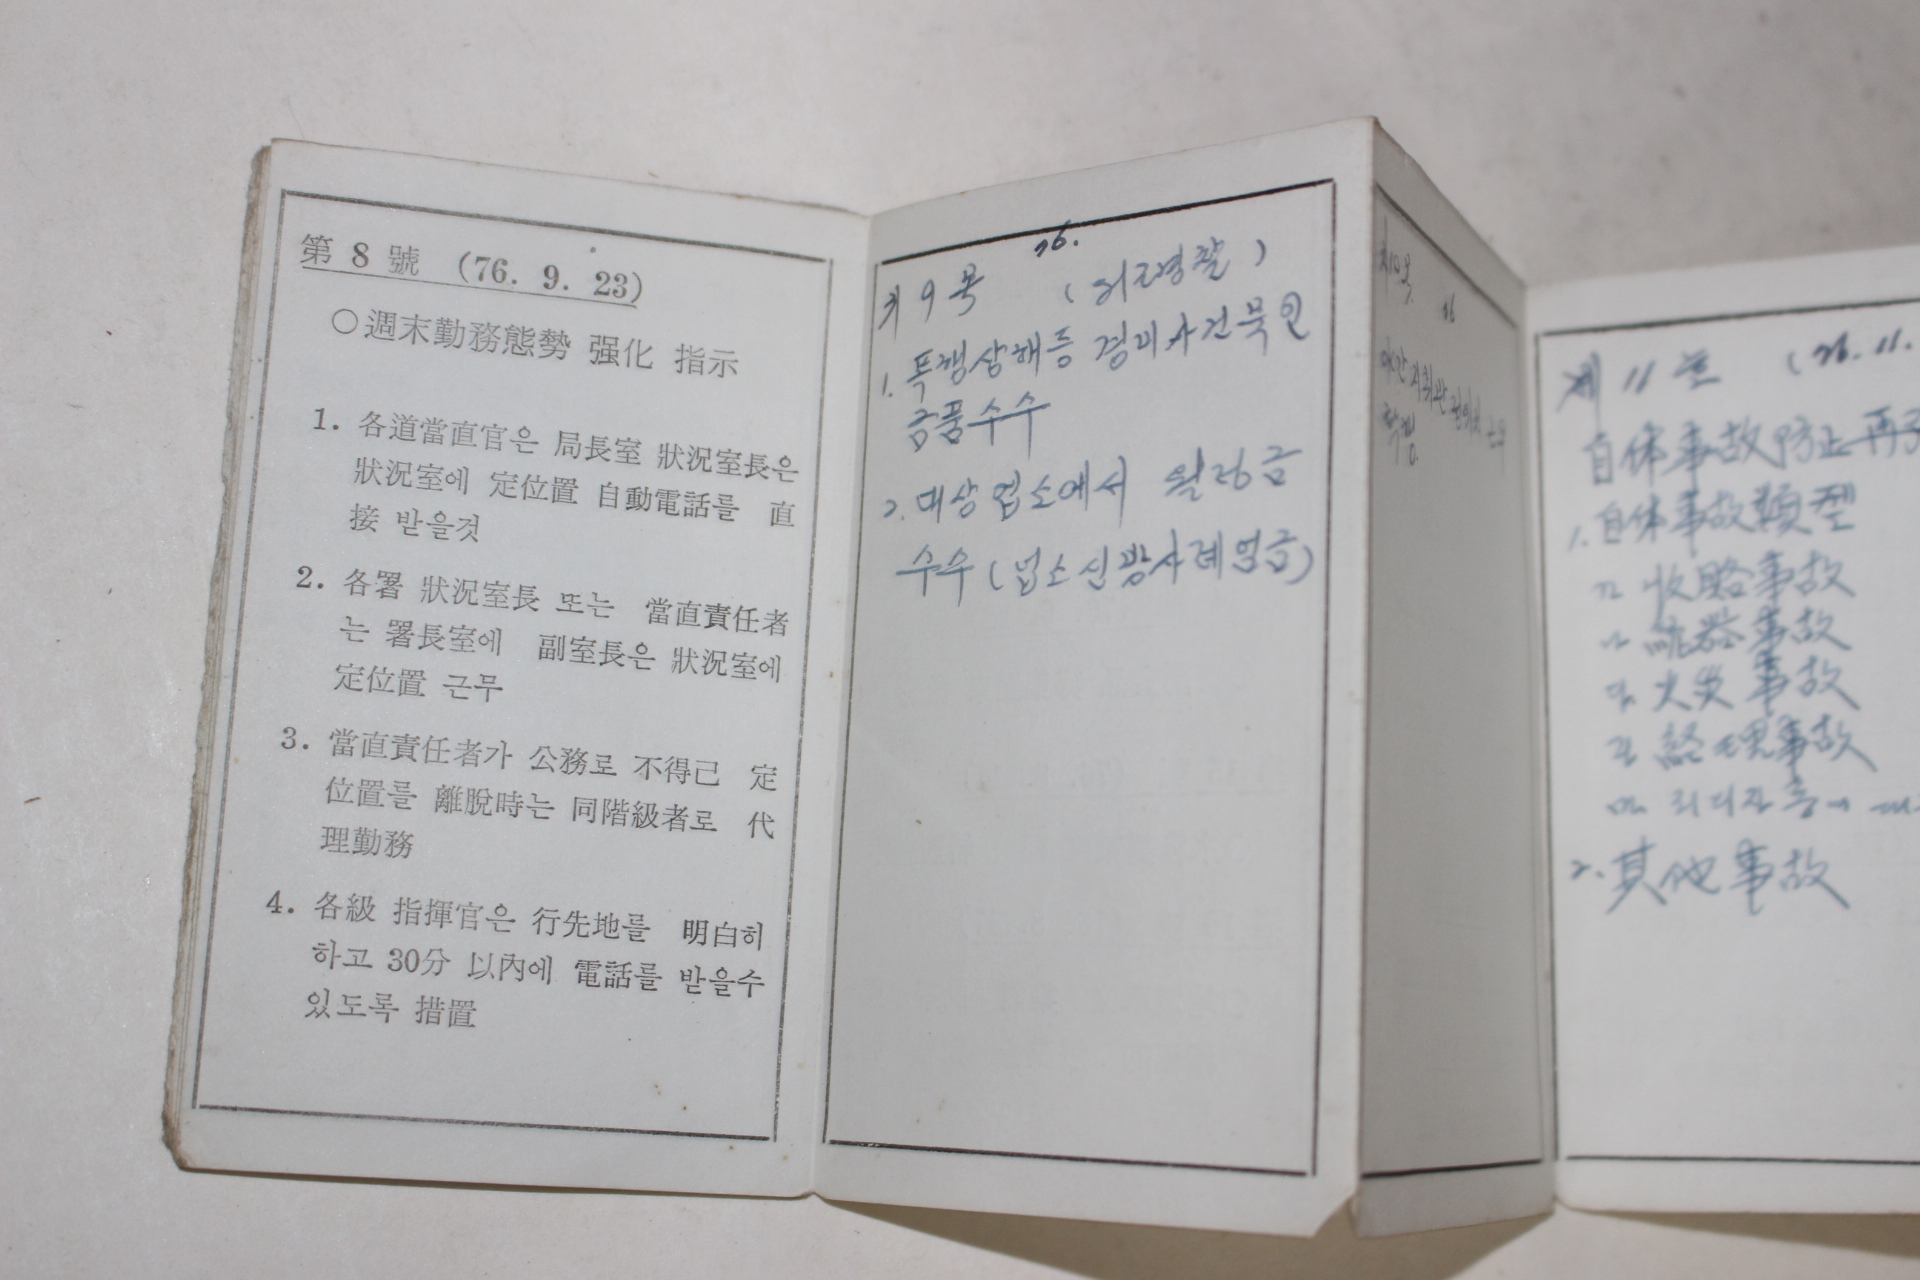 第 8 號 (76. 9. 23)
○週末勤務態勢 强化 指示
1. 各道當直官은 局長室 狀況室長은
狀況室에 定位置 自動電話를 直
接 받을것
2. 各署 狀況室長 또는 當直責任者
는 署長室에 副室長은 狀況室에
定位置 근무
3. 當直責任者가 公務로 不得已 定
位置를 離脫時는 同階級者로 代
理勤務
4. 各級 指揮官은 行先地를 明白히
하고 30分 以內에 電話를 받을수
있도록 措置
76.
제 9 호
1. 폭행상해등 경미사건묵인
금품수수
2. 대상업소에서 월정금
수수 (업소신방사례엄금)
제10호 76
야간지휘관 정위치 근무
확행
제 11 호 (76. 11.
自体事故防止
1. 自体事故類型
가 収賂事故
나 銃器事故
다 火災事故
라 経理事故
마
2. 其他事故